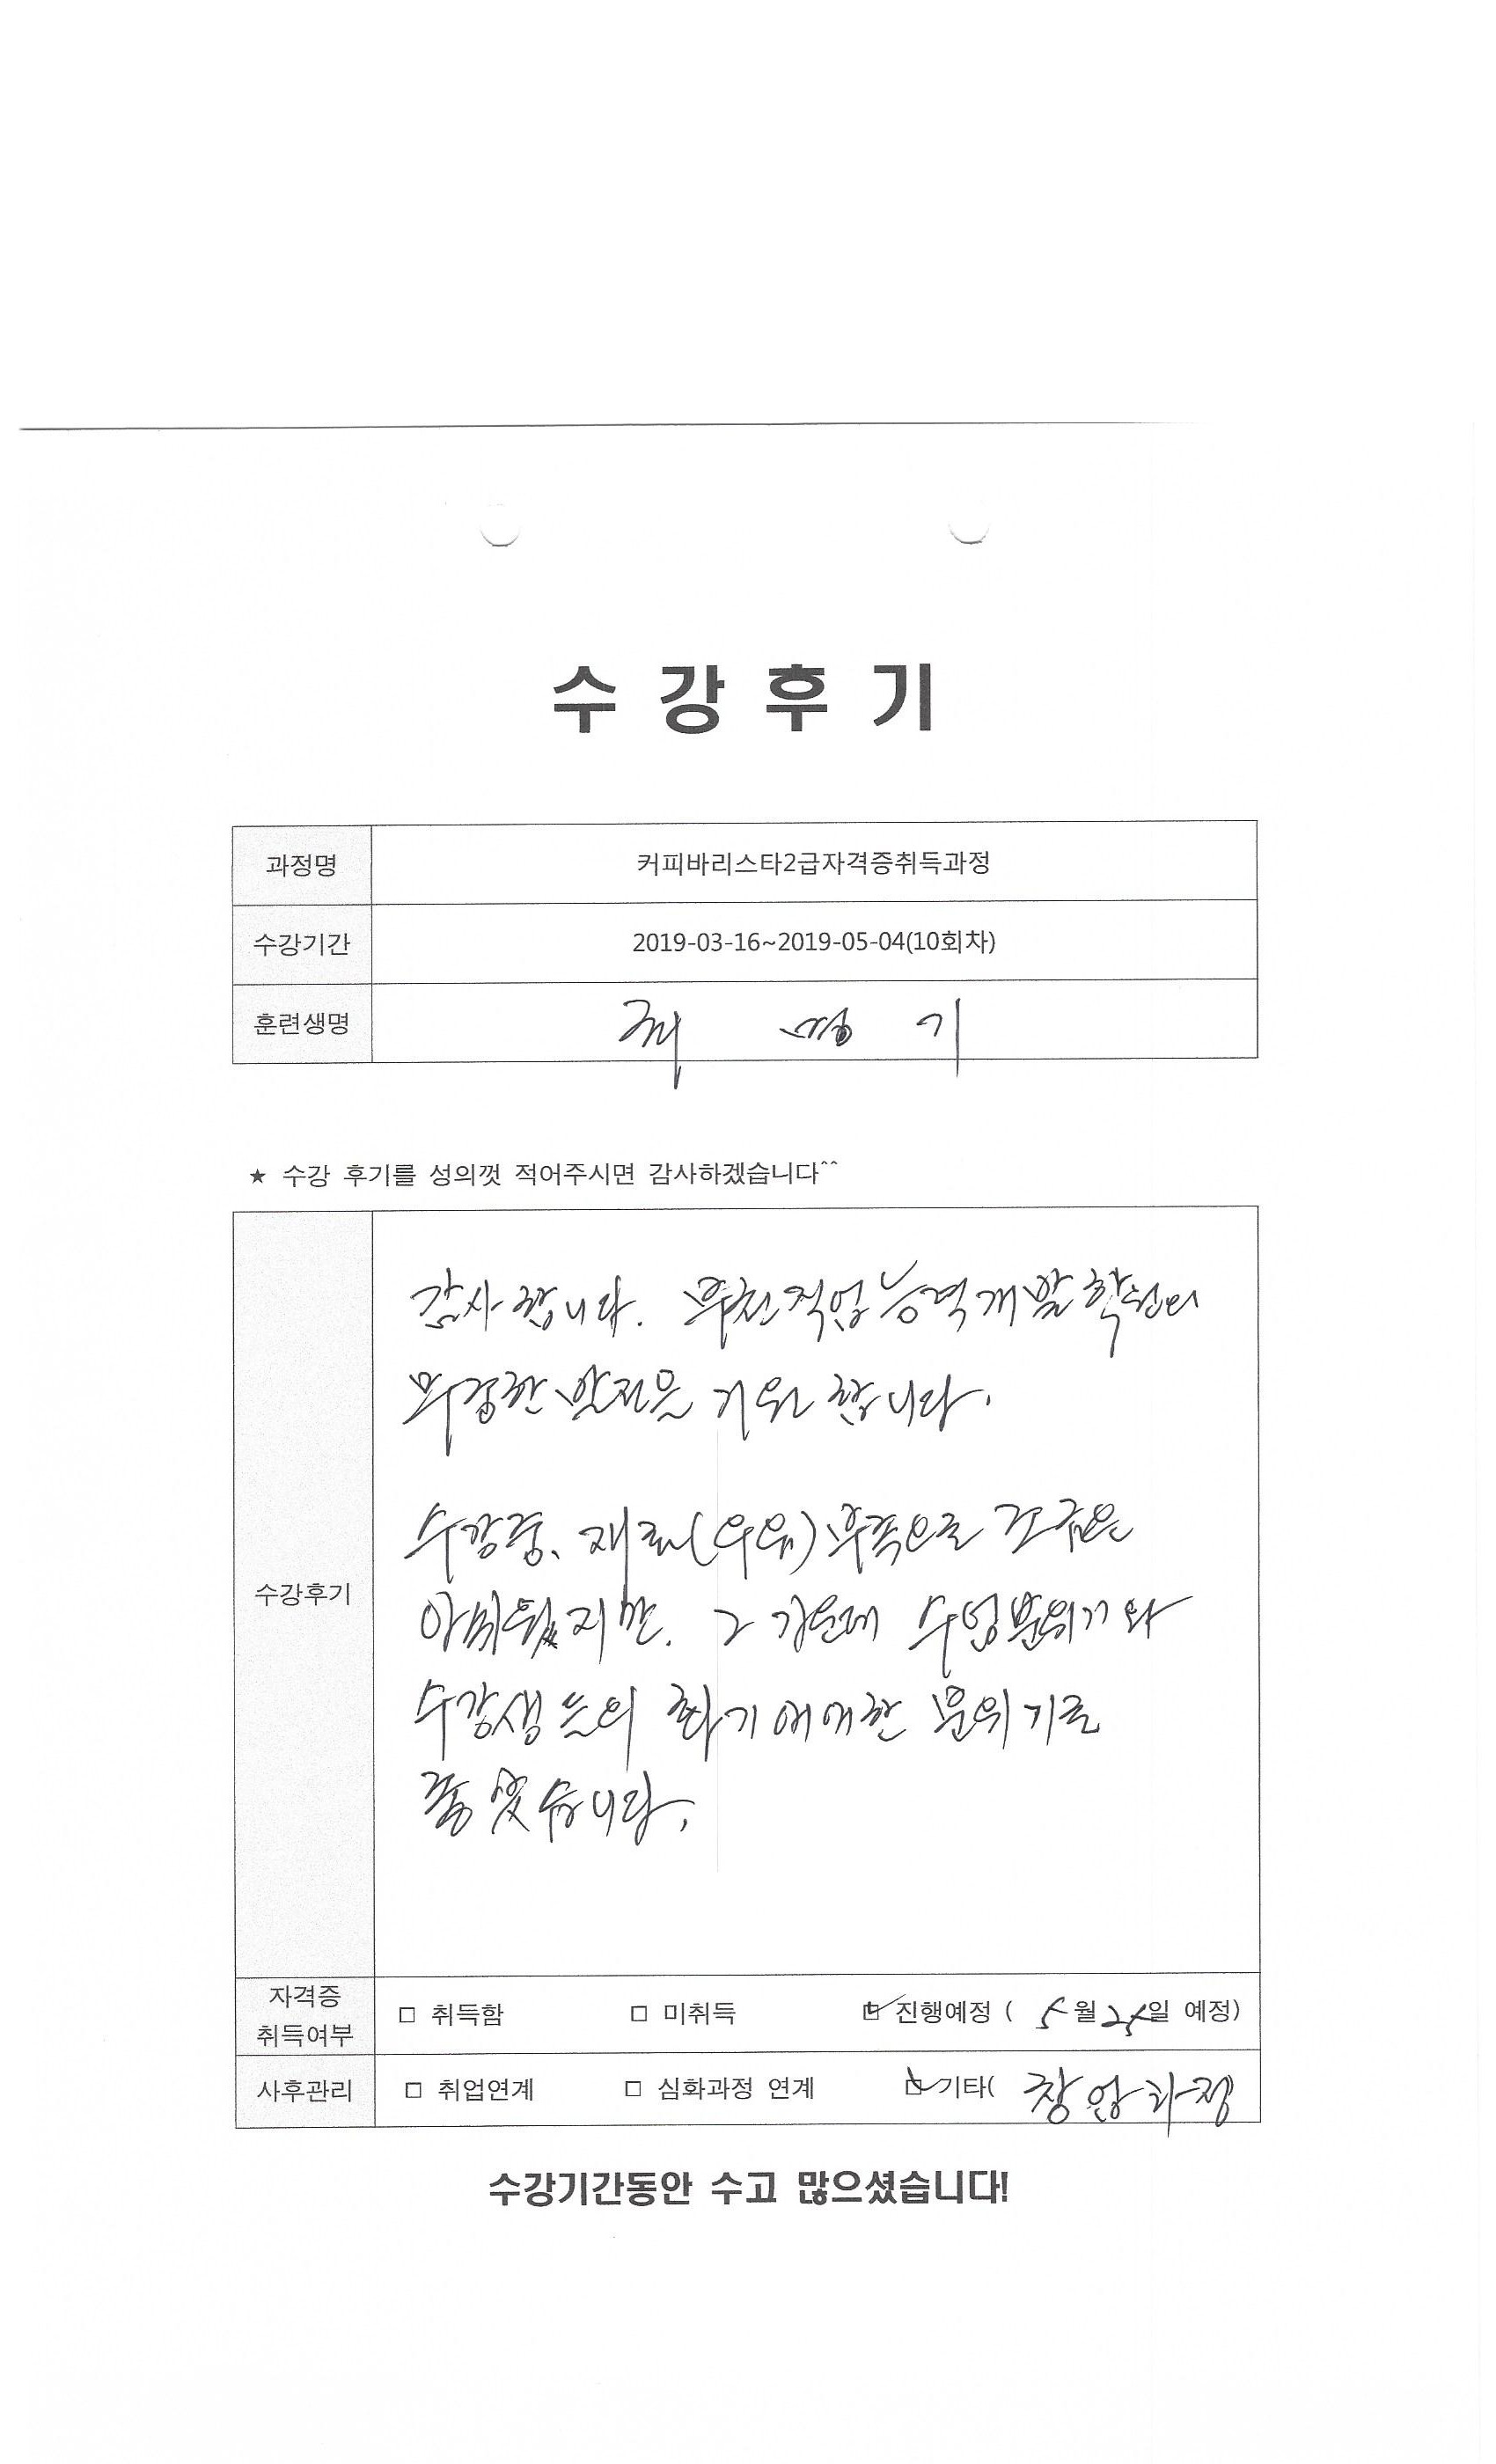 수 강 후 기
과정명 커피바리스타2급자격증취득과정
수강기간 2019-03-16~2019-05-04(10회차)
훈련생명 기
★ 수강 후기를 성의껏 적어주시면 감사하겠습니다^^
수강후기
감사합니다. 부천직업능력개발학원의
무궁한 발전을 기원 합니다.
수강중, 재료(우유)부족으로 조금은
아쉬웠지만, 그 가운데 수업분위기와
수강생들의 화기애애한 분위기로
좋았습니다.
자격증 취득여부 □ 취득함 □ 미취득 ☑ 진행예정 ( 5월 25일 예정)
사후관리 □ 취업연계 □ 심화과정 연계 ☑ 기타( 창업과정
수강기간동안 수고 많으셨습니다!